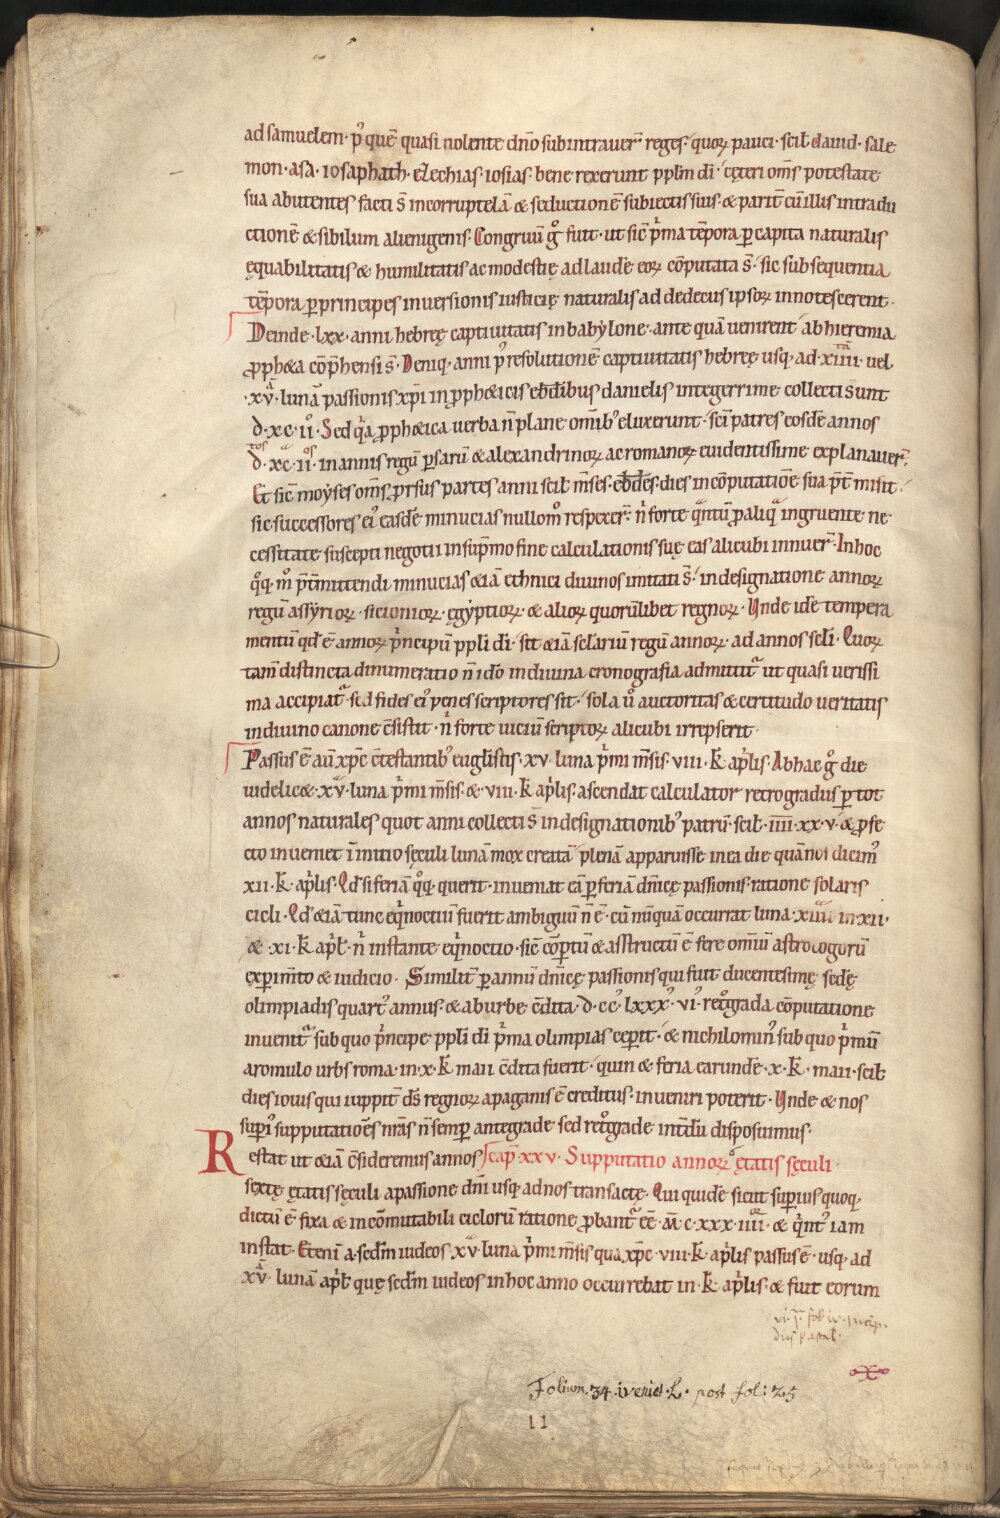 ad samuelem· p᷒ quē quasi nolente dn̄o subintrauer̄ reges· quoꝝ pauci· scil̄ dauid· sale
mon· asa· iosaphath· ezechias· iosias· bene rexerunt ppl̄m di᷒· cęteri om̄s potestate
sua abutentes facti s̄ in corruptelā & seductionē subiectis suis· & parit̄ cū illis in tradu
ctionē & sibilum alienigenis· Congruū gͦ fuit· ut sic̄ pͥma tēpora ꝑ capita naturalis
ęquabilitatis & humilitatis ac modestię ad laudē eoꝝ cōputata s̄· sic subsequentia
tēpora ꝑ principes inuersionis iusticię naturalis ad dedecus ipsoꝝ innotescerent·
Deinde· lxx· anni hebrę captiuitatis in babylone· ante quā uenirent ab hieremia
ꝓph&a cōp̄hensi s̄· Deniq· anni p᷒ resolutionē captiuitatis hebrę usq· ad· xiiii· uel
·xv· lunā passionis xp̄i in ꝓph&icis ebd̄ibus danielis integerrime collecti sunt
·d·xc·ii· Sed qͥa ꝓph&ica uerba n̄ plane omīb᷒ eluxerunt· sc̄i patres eosdē annos
·d·xc·ii· in annis regū ꝑsarū & alexandrinoꝝ ac romanoꝝ euidentissime explanauer̄·
Et sic̄ moẏses om̄s ꝓrsus partes anni scil̄ m̄ses· ebd̄es· dies in cōputatiōe sua p̄t̄misit·
sic successores ei᷒ easdē minucias nullomͦ respexer̄· nͥ forte qͣntū ꝓ aliqͣ ingruente ne
cessitate suscepti negotii in sup̄mo fine calculationis suę eas alicubi innuer̄· In hoc
qͦq· mͦ p̄t̄mittendi minucias &iā ethnici diuinos imitati s̄· in designatione annoꝝ
regū assẏrioꝝ· sicionioꝝ· ęgẏptioꝝ· & alioꝝ quorūlibet regnoꝝ· Unde idē tempera
mentū qd̄ ē annoꝝ pͥncipū ppl̄i di᷒· sit &iā sel̄ariū regū annoꝝ· ad annos sel̄i· Quoꝝ
tam̄ distincta dinumeratio n̄ id̄o in diuina cronografia admittitͬ ut quasi uerissi
ma accipiatͬ· sed fides ei᷒ penes scriptores sit· sola u᷒ auctoritas & certitudo ueritatis
in diuino canone c̄sistit· nͥ forte uiciū scriptoꝝ alicubi irrepserit·
Passus ē au᷒ xp̄c c̄testantib᷒ eugl̄istis· xv· luna pͥmi m̄sis· viii· k̄ apl̄is· Ab hac gͦ die
uidelic&· xv· luna pͥmi m̄sis· & viii· k̄ apl̄is· ascendat calculator retrogradus ꝑ tot
annos naturales quot anni collecti s̄ in designationib᷒ patrū· scil̄· iiii·xx·v· & ꝓfe
cto inueniet ī initio sęculi lunā mox creatā plenā apparuisse in ea die quā noi dicim᷒
xii· k̄· apl̄is· Qd̄ si feriā qͦq· querit· inueniat eā ꝑ feriā dn̄icę passionis ratione solaris
cicli· Qd᷒ &iā tunc eqͥnoctiū fuerit ambiguū n̄ ē· cū nūquā occurrat luna· xiiii· in· xii·
& ·xi· k̄ apl̄· nͥ instante eqͥnoctio· sic̄ cōꝑtū & asstructū ē fere omīū astrologorū
exꝑim̄to & iudicio· Similit̄ ꝑ annū dn̄icę passionis qui fuit ducentesimę sedē
olimpiadis quart᷒ annus· & ab urbe c̄dita· d·cc᷒ lxxx᷒· vi᷒ retͦgrada cōputatione
inuenitͬ sub quo pͥncipe ppl̄i di᷒ pͥma olimpias cęꝑit· & nichilomin᷒ sub quo pͥmū
a romulo urbs roma· in· x· k̄ maii c̄dita fuerit· quin & feria earundē· x· k̄· maii· scil̄
dies iouis qui iuppit̄ ds̄ regnoꝝ a paganis ē creditus· inueniri poterit· Unde & nos
suꝑi᷒ supputatiōes nr̄as n̄ semꝑ antegrade sed retͦgrade int̄dū disposuimus·
Restat ut &iā c̄sideremus annos cap̄· xxv· Supputatio annoꝝ ętatis sęculi·
sextę ętatis sęculi a passione dn̄i usq· ad nos transactę· Qui quidē sicut superius quoq·
dictū ē fixa & incōmutabili ciclorū ratione ꝓbantͬ eē· ·M̄· c·xxx·iiii· & qͥnt᷒ iam
instat· Etenī a· sed̄m iudeos xv· luna pͥmi m̄sis qua xp̄c· viii· k̄ apl̄is passus ē· usq· ad
xv· lunā apl̄· quę sed̄m iudeos in hoc anno occurrebat in· k̄ apl̄is· & fuit eorum
dies pascal·
Folium 34 iveniet · post fol: 25
11